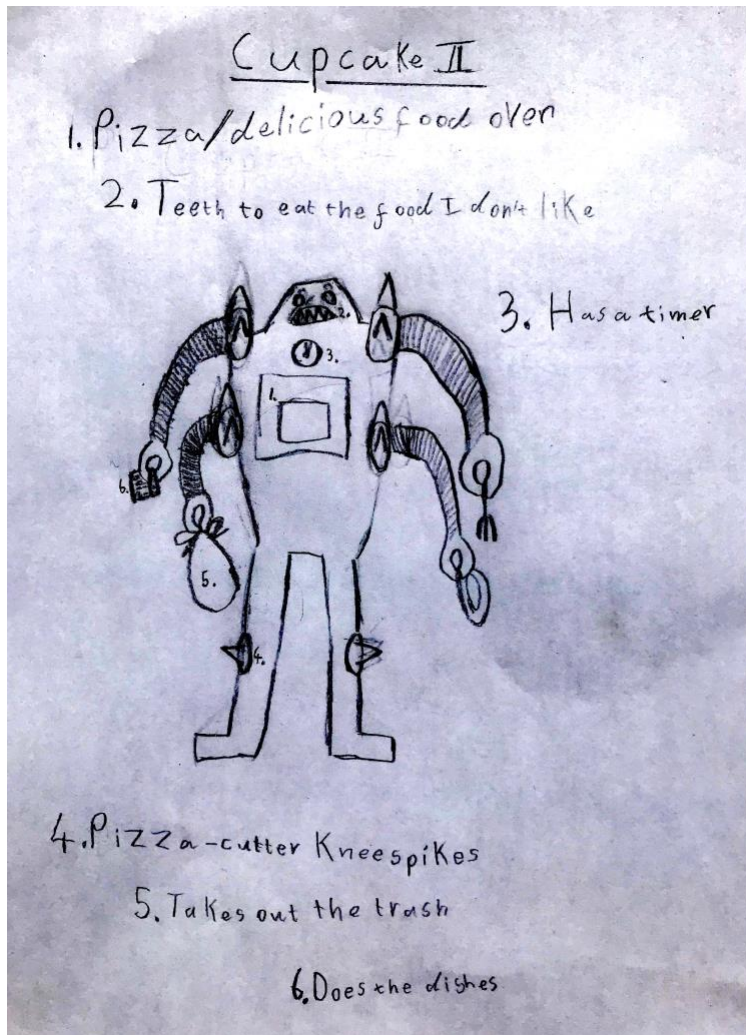 Cupcake II
1. Pizza/delicious food oven
2. Teeth to eat the food I don't like
3. Has a timer
2.
3.
1.
6.
5.
4.
4. Pizza-cutter Kneespikes
5. Takes out the trash
6. Does the dishes